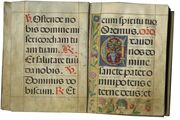 ℣. Ostende no
bis domine mi
sericordiam
tuam. ℟.
Et salutare tuũ
da nobis. ℣.
Dominus vo
biscum. ℟. Et
cum spiritu tuo
Oremus.
Oran
di nos do
mine
sancte pater o
mnipotens e
terne deus